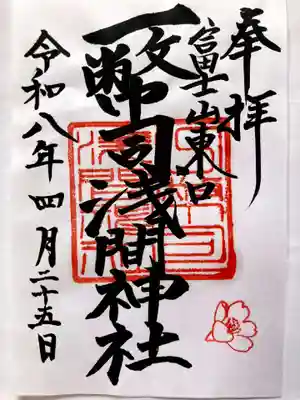 奉拝
富士山東口
一幣司浅間神社
令和八年四月二十五日